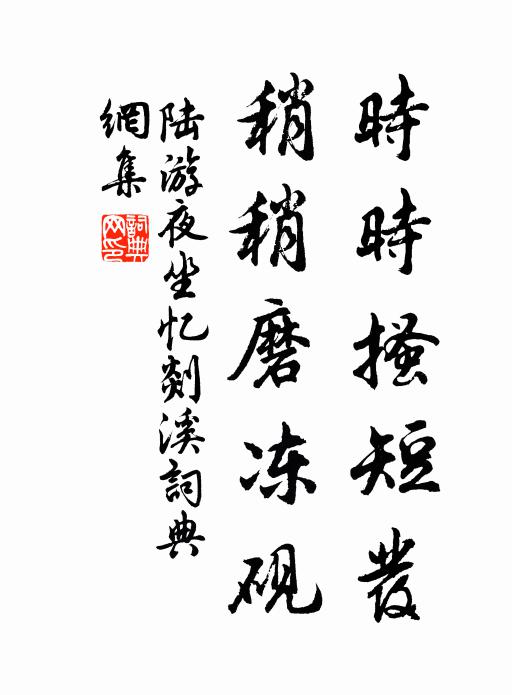 時時搔短發
稍稍磨冻硯
陆游夜坐忆剡溪詞典
網集
詞典
网印